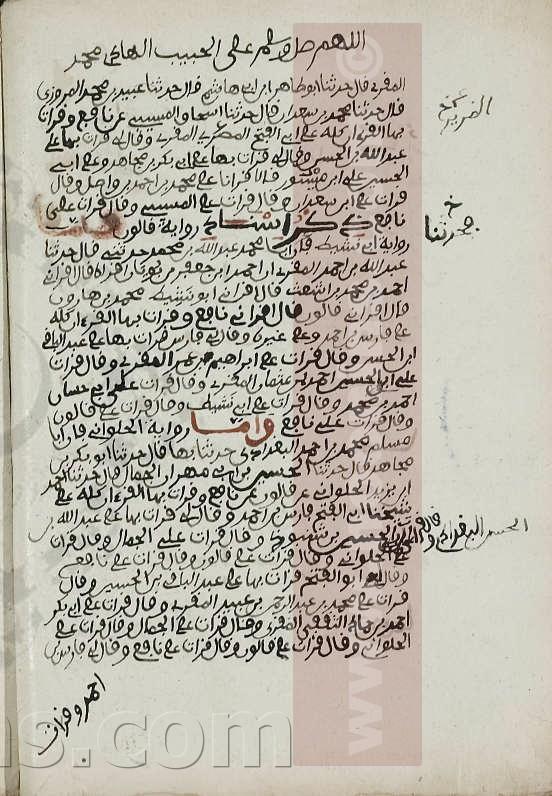 اللهم صل وسلم على الحبيب الهادي محمد
المقرئ قال حدثنا ابو طاهر ابن ابي هاشم قال حدثنا عبيد بن محمد المروزي
قال حدثنا محمد بن سعدان قال حدثنا اسحاق المسيبي عن نافع وقرات
بها القرءان كله على ابي الفتح المقرئ وقال لي قرات بها على
عبد الله بن الحسين وقال لي قرات بها على ابي بكر بن مجاهد وعلى ابي
الحسين علي بن قالا قرانا على محمد بن احمد بن واصل وقال
قرات على ابن سعدان وقال قرات على المسيبي وقال قرات على
نافع رواية قالون
رواية ابي نشيط محمد عبد الله بن محمد حدثني قال حدثنا
عبد الله بن احمد المقرئ احمد ابن جعفر بن بويان قراة قال اقراني
احمد بن محمد بن الاشعث قال اقراني ابو نشيط محمد بن هارون
قال اقراني قالون قال اقراني نافع وقرات بها القرءان كله
على فارس بن احمد وعلى غيره وقال لي فارس قرات بها على عبد الباقي
ابن الحسن وقال قرات على ابراهيم بن عمر المقرئ وقال قرات
على ابي الحسين احمد بن عثمان المقرئ وقال قرات على ابي حسان
احمد بن محمد وقال قرات على ابي نشيط وقال قرات على قالون
وقال قرات على نافع واما رواية الحلواني
مسلم محمد بن احمد البغدادي حدثنا بها قال حدثنا ابو بكر بن
مجاهد قال حدثنا الحسين بن ابي مهران الجمال قال حدثنا احمد
ابن يزيد الحلواني عن قالون عن نافع وقرات بها القرءان كله على
شيخنا ابي الفتح فارس بن احمد وقال لي قرات بها على عبد الله بن
الحسين بن شنبوذ وقال قرات على الجمال وقال قرات
على الحلواني وقال قرات على قالون وقال قرات على نافع
وقال لي ابو الفتح قرات بها على عبد الباقي بن الحسن وقال
قرات على محمد بن عبد الرحمن بن عبيد المقرئ وقال قرات على ابي بكر
احمد بن حماد الثقفي المقرئ وقال قرات على الجمال وقال قرات على
الحلواني وقال قرات على قالون وقال قرات على نافع وقال لي فارس بن
احمد وقرات
الضرير
حدثنا
ns.com
www.